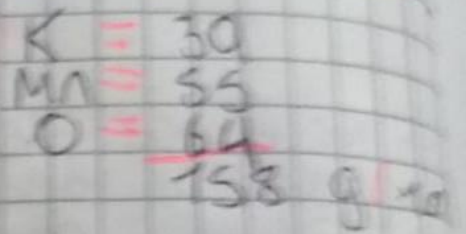 K = 39
Mn = 55
O = 64
158 g